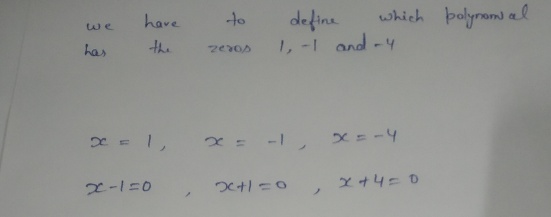 we have to define which polynomial
has the zeros 1, -1 and -4
x = 1, x = -1, x = -4
x-1=0, x+1=0, x+4=0